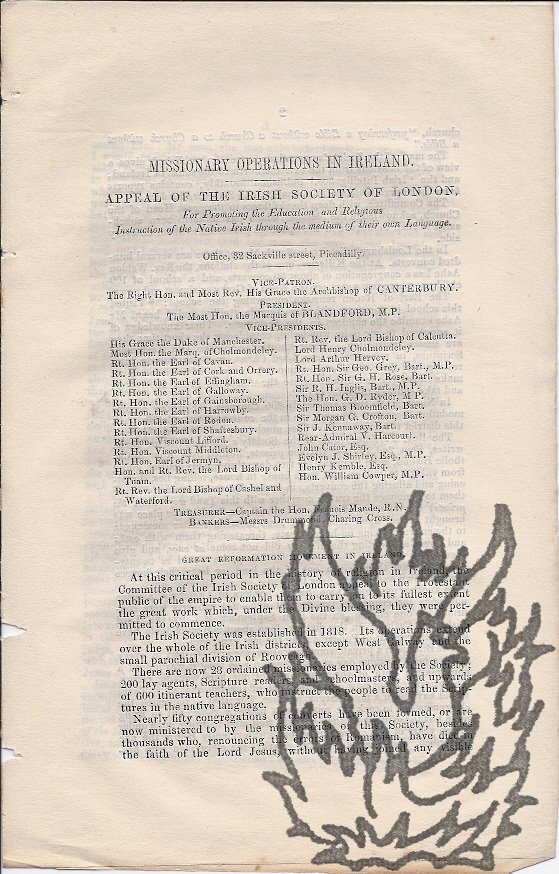 MISSIONARY OPERATIONS IN IRELAND.
APPEAL OF THE IRISH SOCIETY OF LONDON,
For Promoting the Education and Religious
Instruction of the Native Irish through the medium of their own Language.
Office, 32 Sackville street, Piccadilly.
VICE-PATRON.
The Right Hon. and Most Rev. His Grace the Archbishop of CANTERBURY.
PRESIDENT.
The Most Hon. the Marquis of BLANDFORD, M.P.
VICE-PRESIDENTS.
His Grace the Duke of Manchester.
Most Hon. the Marq. of Cholmondeley.
Rt. Hon. the Earl of Cavan.
Rt. Hon. the Earl of Cork and Orrery.
Rt. Hon. the Earl of Effingham.
Rt. Hon. the Earl of Galloway.
Rt. Hon. the Earl of Gainsborough.
Rt. Hon. the Earl of Harrowby.
Rt. Hon. the Earl of Roden.
Rt. Hon. the Earl of Shaftesbury.
Rt. Hon. Viscount Lifford.
Rt. Hon. Viscount Middleton.
Rt. Hon. Earl of Jermyn.
Hon. and Rt. Rev. the Lord Bishop of
Tuam.
Rt. Rev. the Lord Bishop of Cashel and
Waterford.
Rt. Rev. the Lord Bishop of Calcutta.
Lord Henry Cholmondeley.
Lord Arthur Hervey.
Rt. Hon. Sir Geo. Grey, Bart., M.P.
Rt. Hon. Sir G. H. Rose, Bart.
Sir R. H. Inglis, Bart., M.P.
The Hon. G. D. Ryder, M.P.
Sir Thomas Bloomfield, Bart.
Sir Morgan G. Crofton, Bart.
Sir J. Kennaway, Bart.
Rear-Admiral V. Harcourt.
John Cator, Esq.
Evelyn J. Shirley, Esq., M.P.
Henry Kemble, Esq.
Hon. William Cowper, M.P.
TREASURER—Captain the Hon. Francis Maude, R.N.
BANKERS—Messrs Drummond, Charing Cross.
GREAT REFORMATION MOVEMENT IN IRELAND.
At this critical period in the history of religion in Ireland, the
Committee of the Irish Society of London appeal to the Protestant
public of the empire to enable them to carry out to its fullest extent
the great work which, under the Divine blessing, they were per-
mitted to commence.
The Irish Society was established in 1818. Its operations extend
over the whole of the Irish districts, except West Galway and the
small parochial division of Rooveagh.
There are now 23 ordained missionaries employed by the Society;
200 lay agents, Scripture readers, and schoolmasters, and upwards
of 600 itinerant teachers, who instruct the people to read the Scrip-
tures in the native language.
Nearly fifty congregations of converts have been formed, or are
now ministered to by the missionaries of this Society, besides
thousands who, renouncing the errors of Romanism, have died in
the faith of the Lord Jesus, without having joined any visible